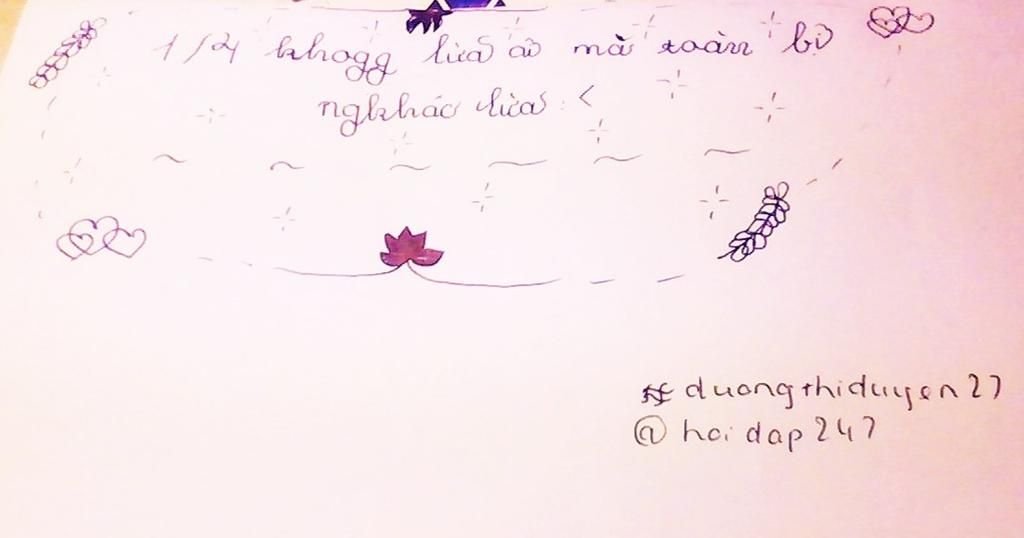 1/4 khogg lừa ai mà toàn bị
ngkhác lừa :<
# duongthiduyen27
@hoidap247